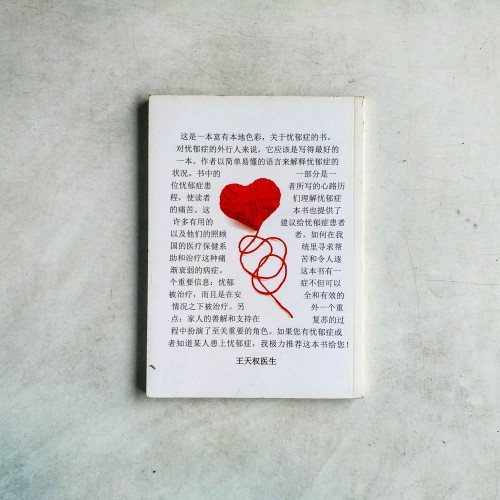 这是一本富有本地色彩，关于忧郁症的书。
对忧郁症的外行人来说，它应该是写得最好的
一本。作者以简单易懂的语言来解释忧郁症的
状况。书中的一部分是一
位忧郁症患者所写的心路历
程；使读者们理解忧郁症
的痛苦。这本书也提供了
许多有用的建议给忧郁症患者
以及他们的照顾者，如何在我
国的医疗保健系统里寻求帮
助和治疗这种痛苦和令人逐
渐衰弱的病症。这本书有一
个重要信息：忧郁症不但可以
被治疗，而且是在安全和有效的
情况之下被治疗。另外一个重
点：家人的善解和支持在复苏的过
程中扮演了至关重要的角色。如果您有忧郁症或
者知道某人患上忧郁症，我极力推荐这本书给您！
王天权医生